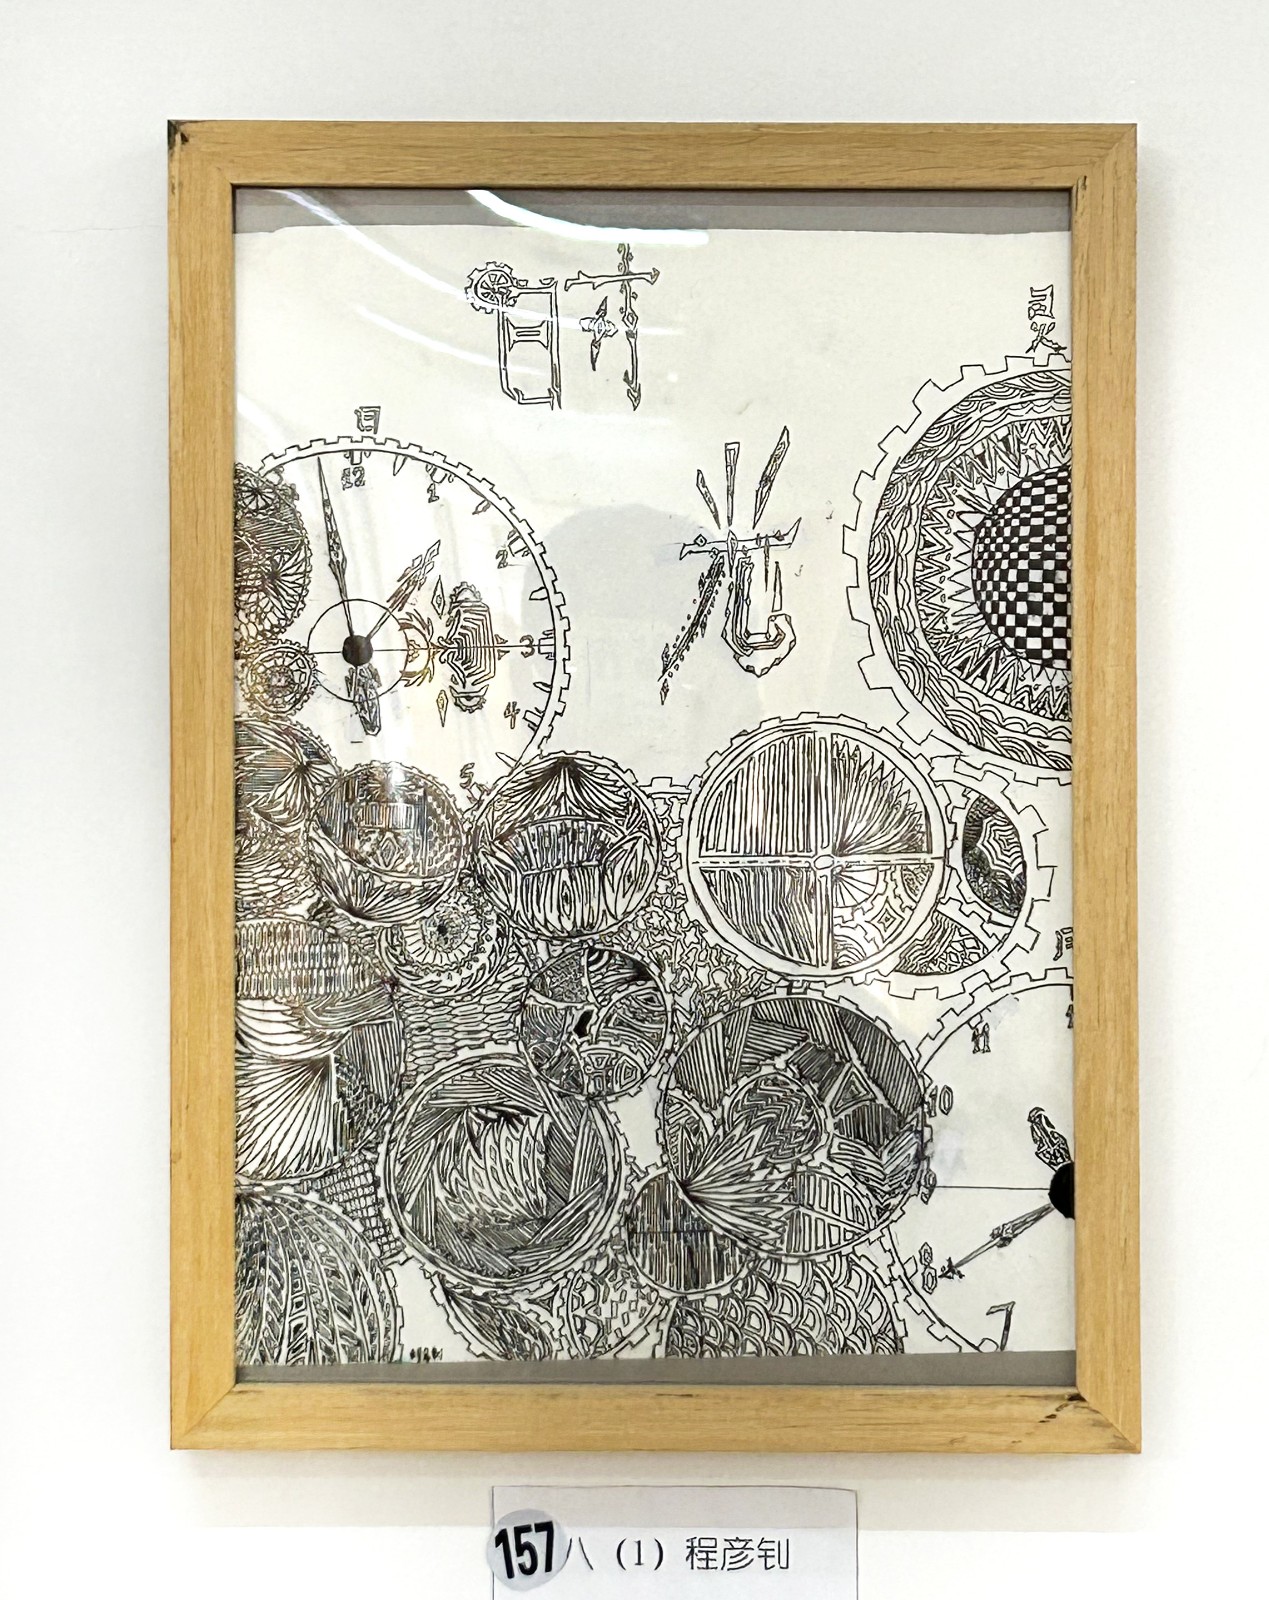 时
光
日
12
1
2
3
4
5
11
10
9
8
7
157 八（1）程彦钊